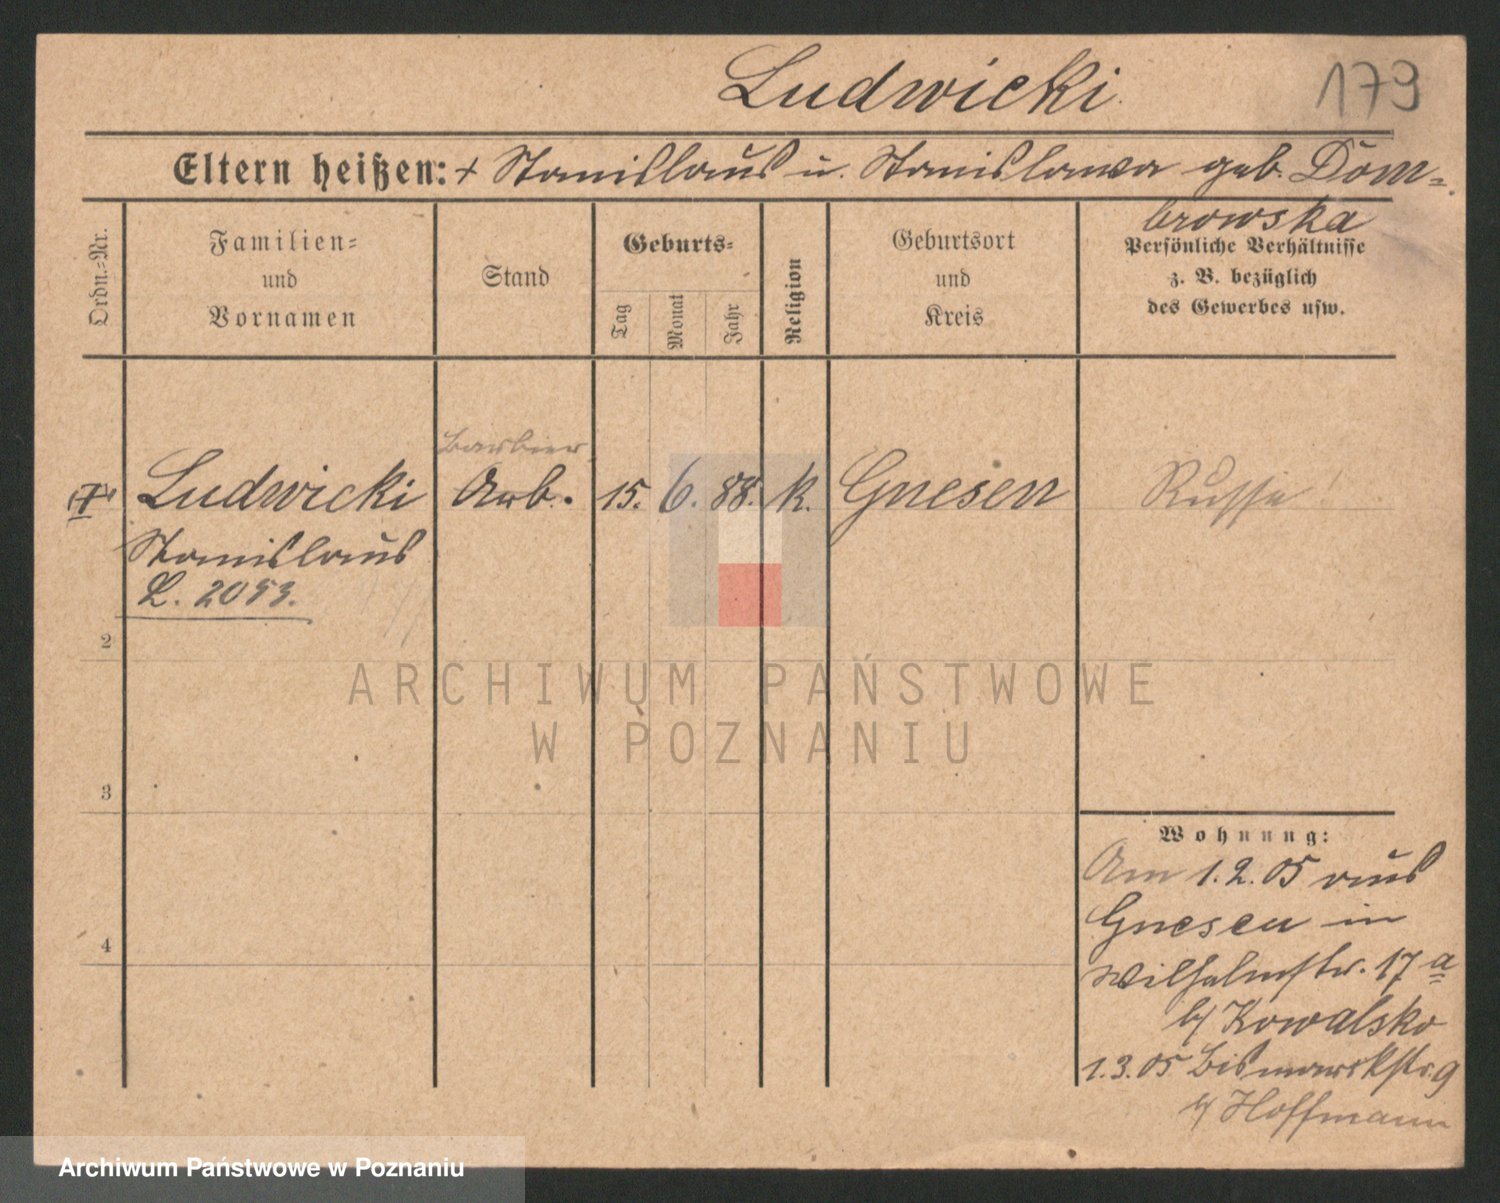 Ludwicki
179
Eltern heißen: + Stanislaus u. Stanislawa geb. Dom=
browska
Ordn.=Nr.
Familien=
und
Vornamen
Stand
Geburts=
Tag
Monat
Jahr
Religion
Geburtsort
und
Kreis
Persönliche Verhältnisse
z. B. bezüglich
des Gewerbes usw.
Barbier
Ludwicki Arb. 15. 6. 88. k. Gnesen Russe!
Stanislaus
L. 2053.
2
ARCHIWUM PAŃSTWOWE
W POZNANIU
3
4
Wohnung:
Am 1.2.05 aus
Gnesen in
Wilhelmstr. 17 a
b/ Kowalsko
1.3.05 Bismarckstr. 9
b/ Hoffmann
Archiwum Państwowe w Poznaniu